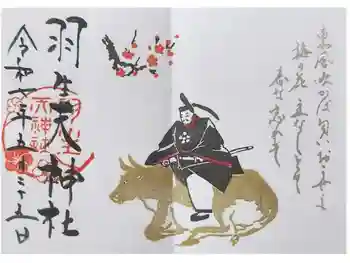 東風吹かば匂いおこせよ
梅の花 主なしとて
春な忘れそ
羽生天神社
令和七年二十五日